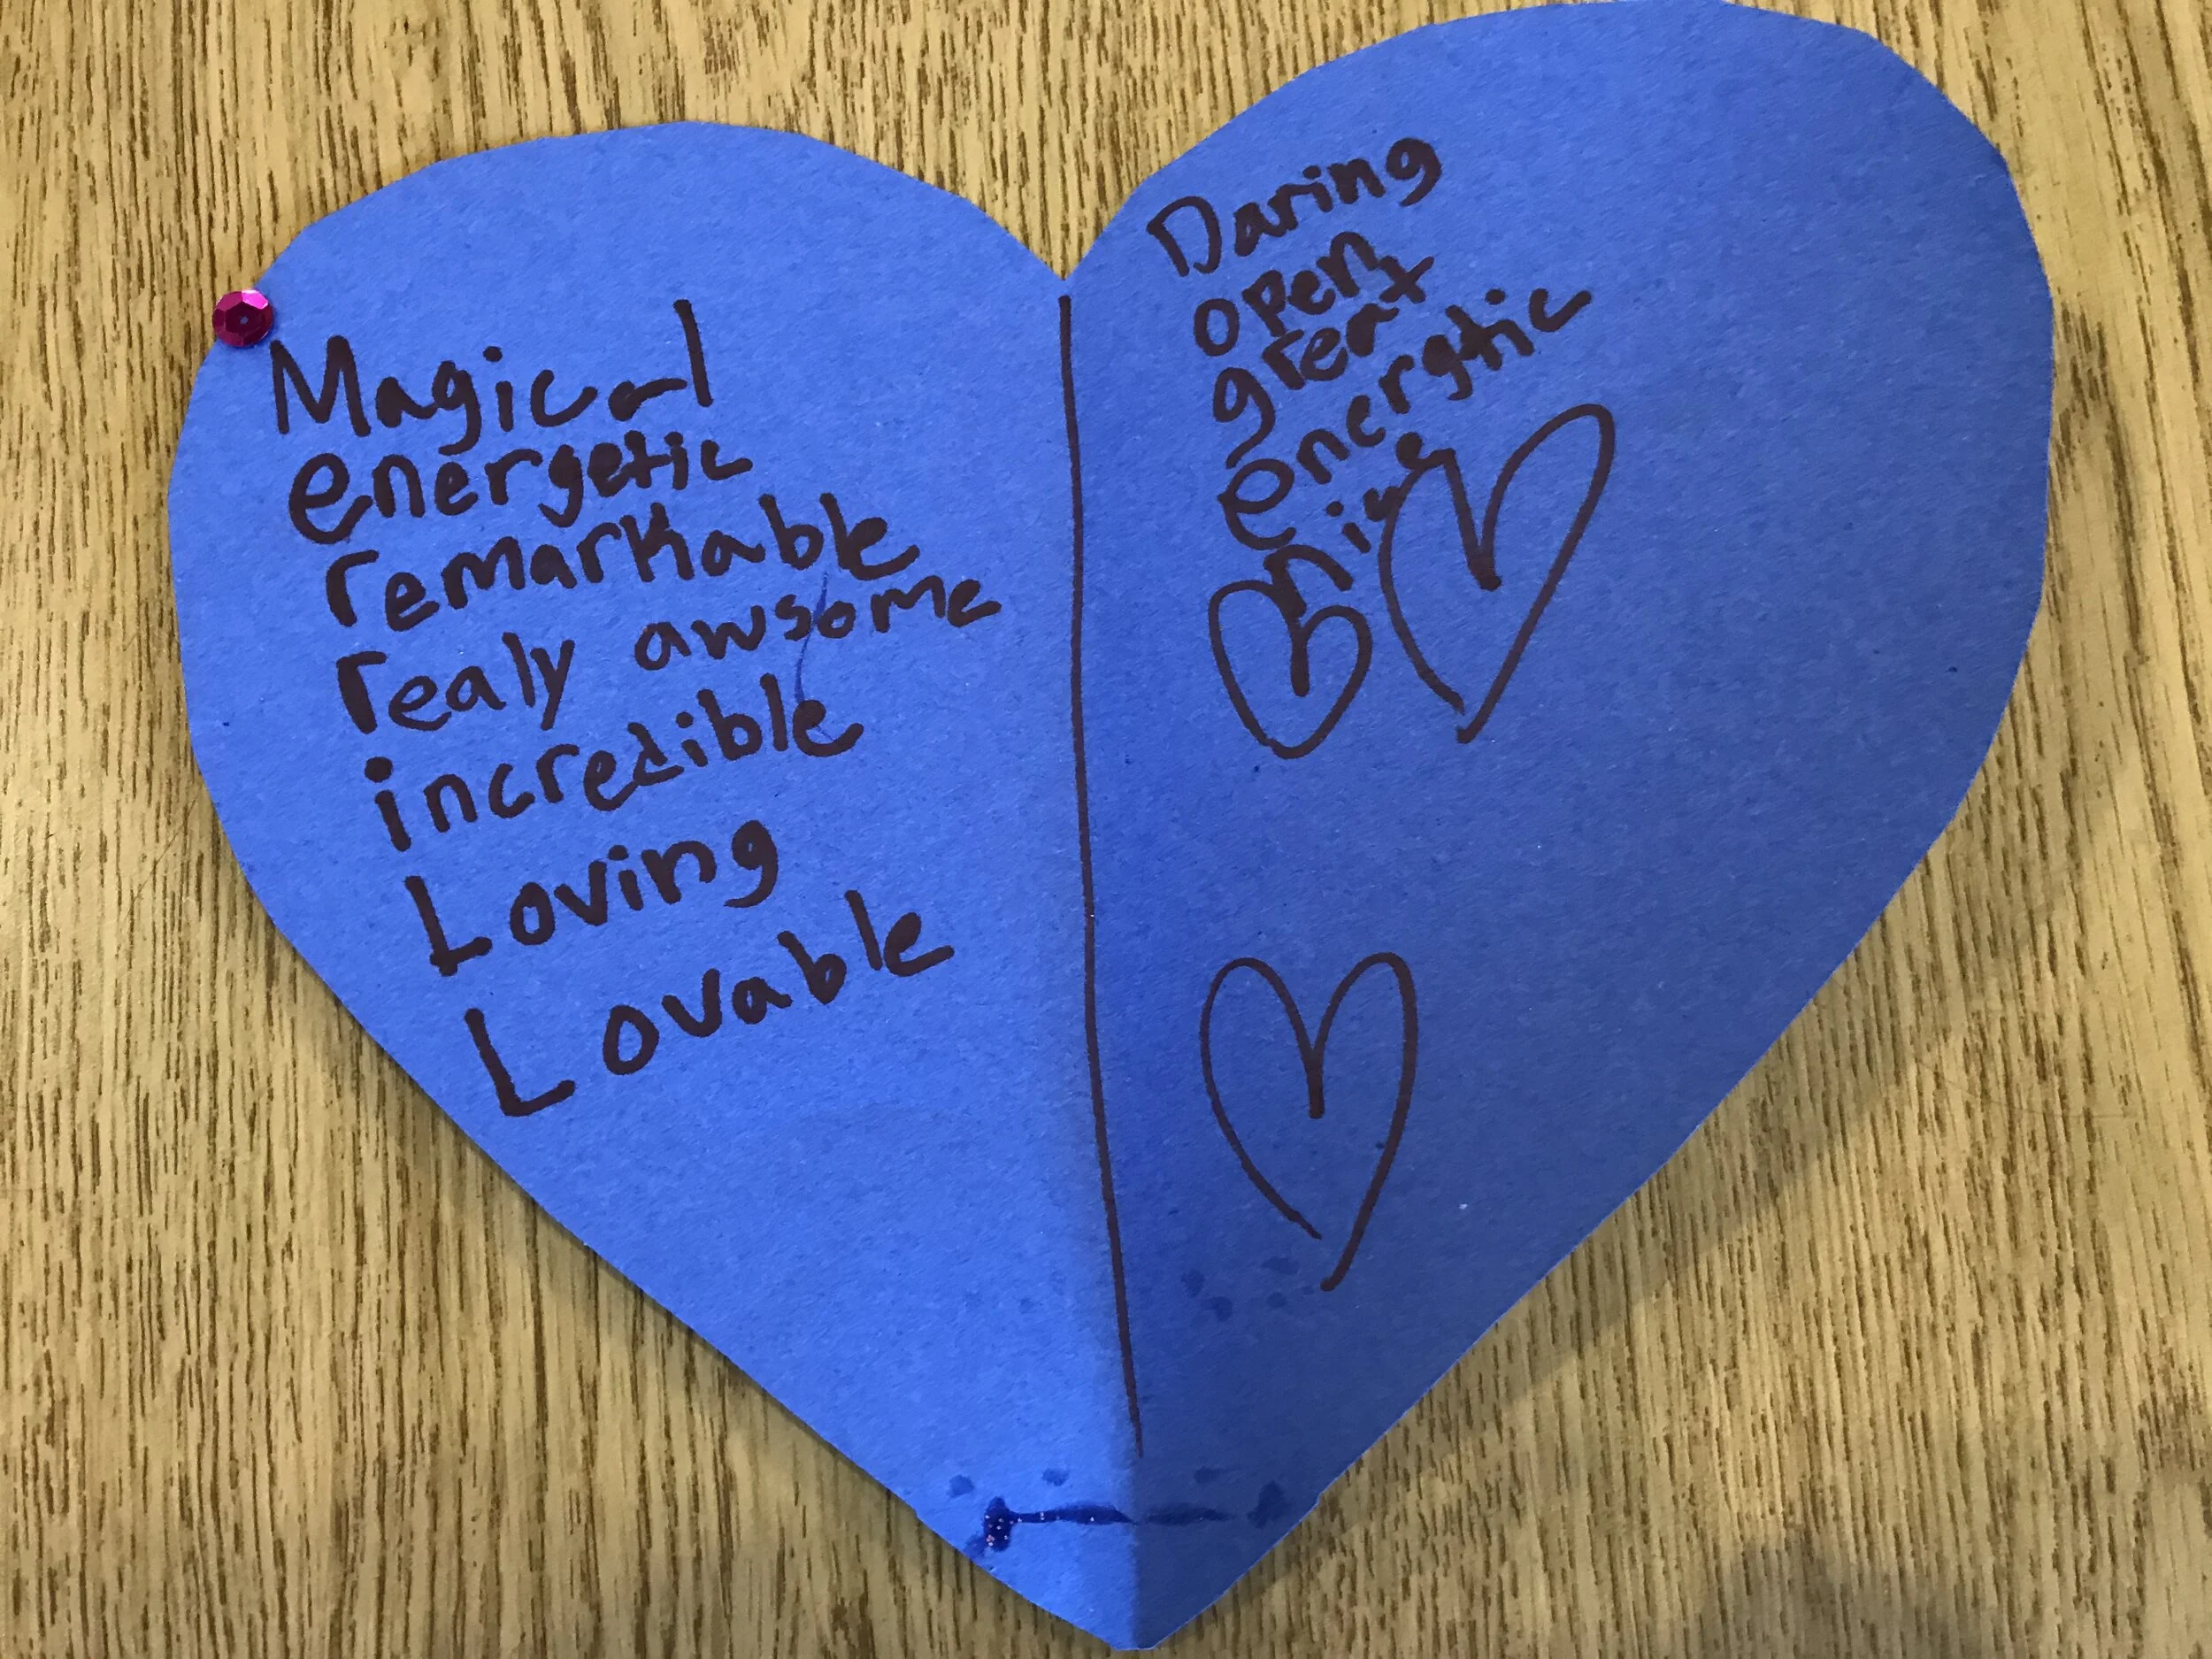 Magical
energetic
remarkable
realy awsome
incredible
Loving
Lovable
Daring
open
great
energtic
nice